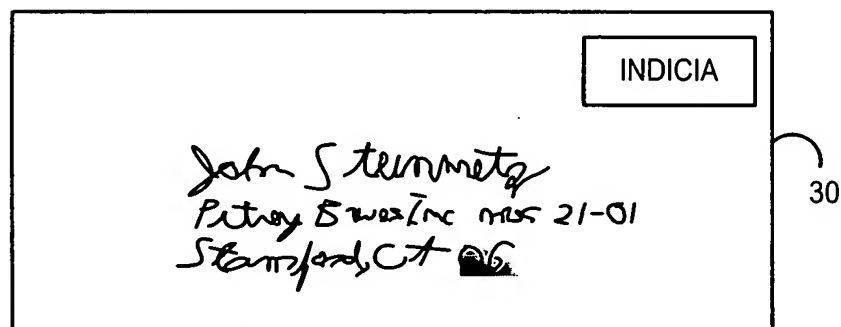 INDICIA
John Steinmetz
Pitney Bowes Inc 21-01
Stamford, CT
30